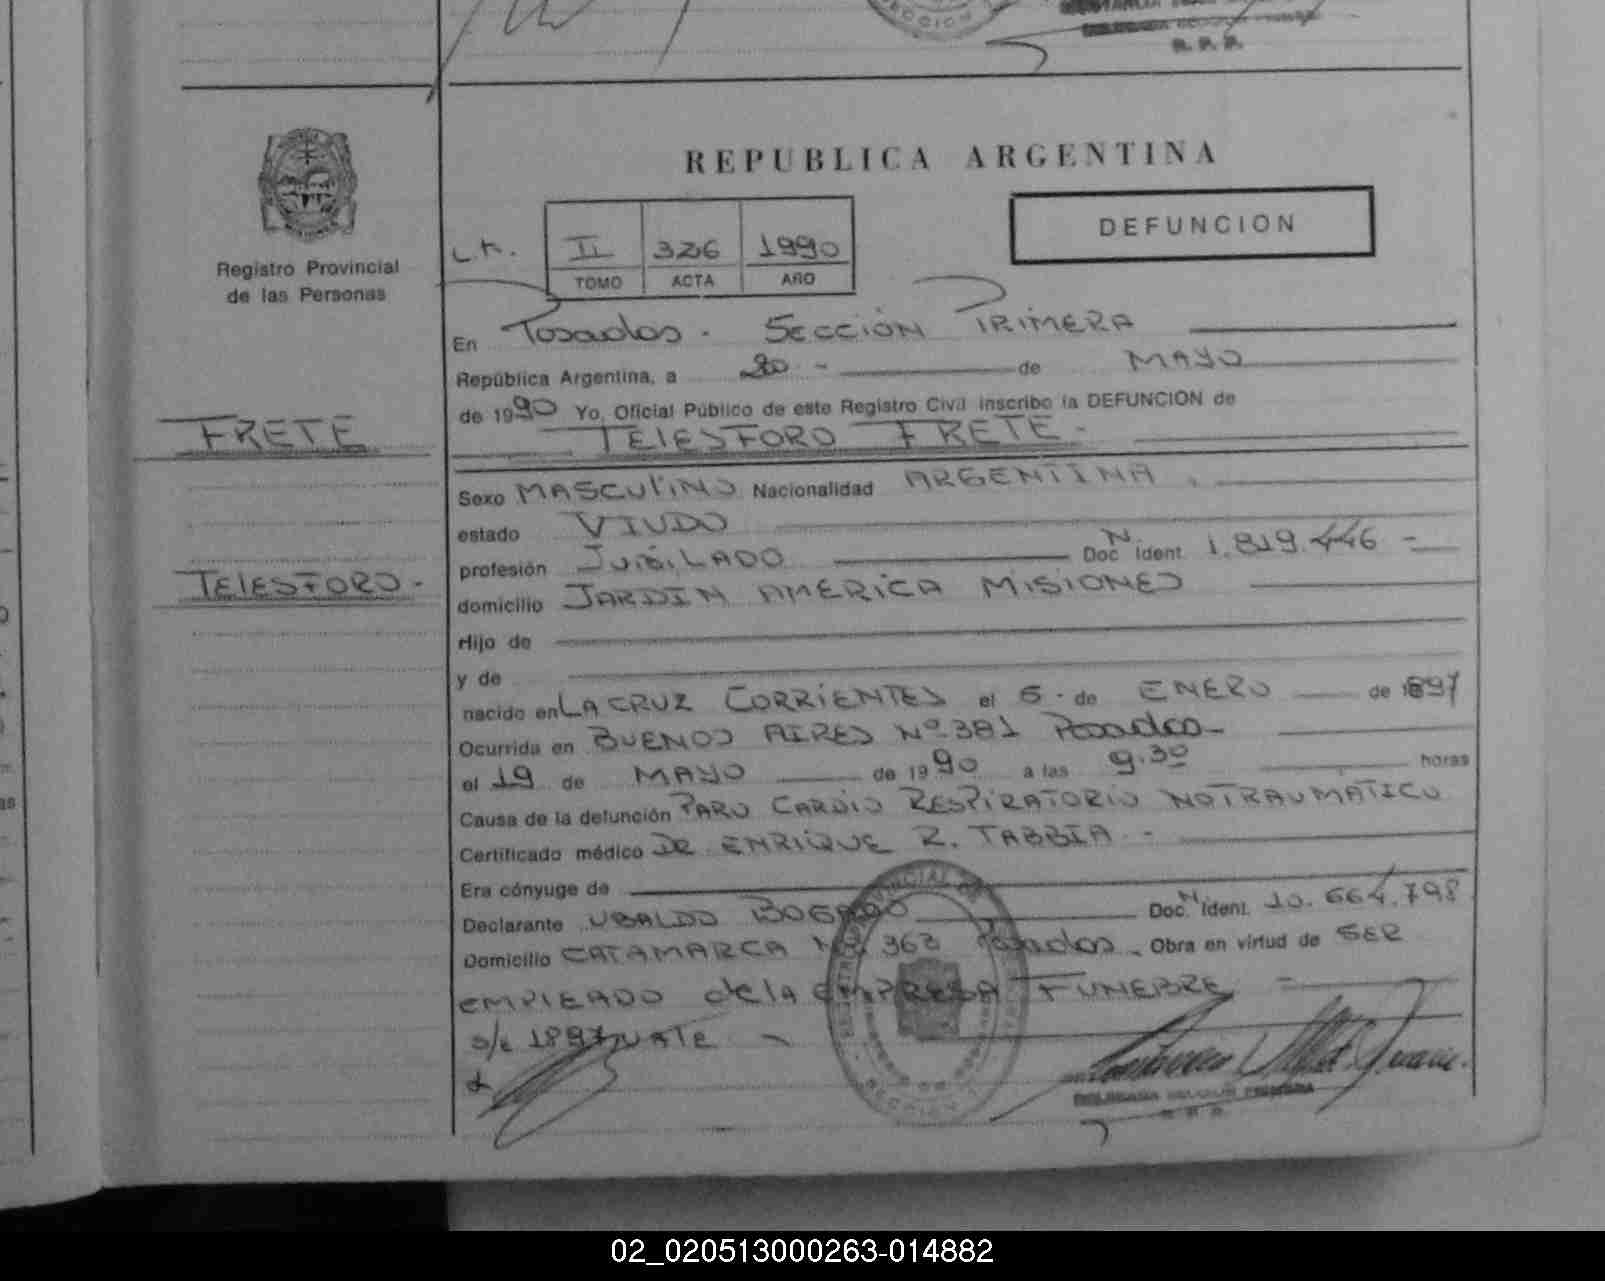 SECCION 1
DELEGADA SECCION PRIMERA
R. P. P.
REPUBLICA ARGENTINA
DEFUNCION
II 326 1990
TOMO ACTA AÑO
Registro Provincial
de las Personas
En Posadas. SECCIÓN PRIMERA
República Argentina, a 20 - de MAYO
de 1990 Yo, Oficial Público de este Registro Civil inscribo la DEFUNCION de
FRETE
TELESFORO FRETE -
Sexo MASCULINO Nacionalidad ARGENTINA.
estado VIUDO
profesión JUBILADO Doc. N. Ident. 1.819.446 -
TELESFORO -
domicilio JARDIN AMERICA MISIONES
Hijo de
y de
nacido en LA CRUZ CORRIENTES el 5 - de ENERO de 1897
Ocurrida en BUENOS AIRES Nº 381 Posadas -
el 19 de MAYO de 1990 a las 9.30 horas
Causa de la defunción PARO CARDIO RESPIRATORIO NO TRAUMATICO
Certificado médico DR ENRIQUE R. TABBIA -
Era cónyuge de
Declarante UBALDO BOGADO Doc. N. Ident. 10.664.798
Domicilio CATAMARCA Nº 363 Posadas - Obra en virtud de SER
EMPLEADO de LA EMPRESA FUNEBRE -
s/e 1897 VALE -
SECCION 1
DELEGADA SECCION PRIMERA
R. P. P.
02_020513000263-014882